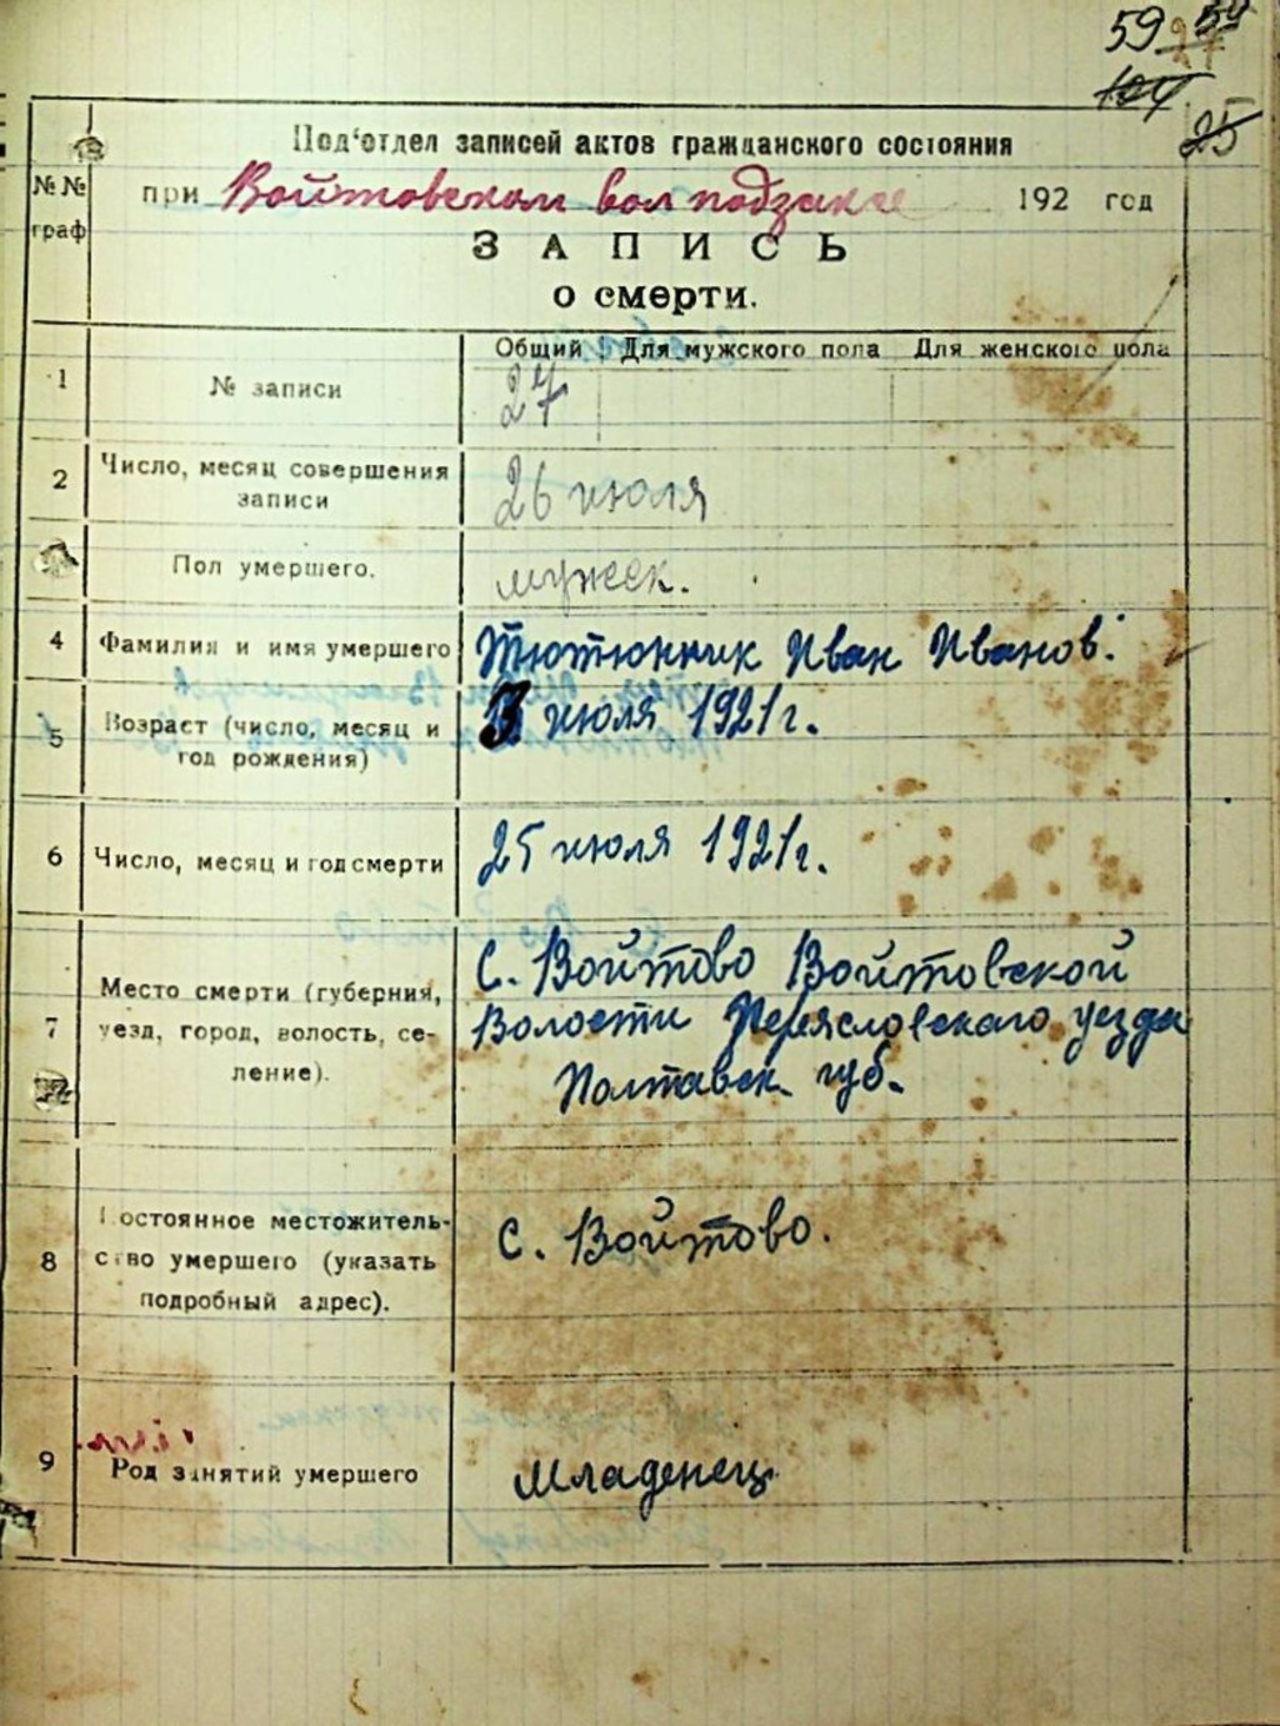 59 27
104
25
Под'отдел записей актов гражданского состояния
№№ граф
при Войтовском вол подзаксе 192 год
ЗАПИСЬ
о смерти.
Общий Для мужского пола Для женского пола
1 № записи 27
2 Число, месяц совершения записи 26 июля
Пол умершего. мужеск.
4 Фамилия и имя умершего Тютюнник Иван Иванов.
5 Возраст (число, месяц и год рождения) 3 июля 1921 г.
6 Число, месяц и год смерти 25 июля 1921 г.
7 Место смерти (губерния, уезд, город, волость, селение). С. Войтово Войтовской
Волости Переясловскаго уезда
Полтавск. губ.
8 Постоянное местожительство умершего (указать подробный адрес). С. Войтово.
9 Род занятий умершего Младенец